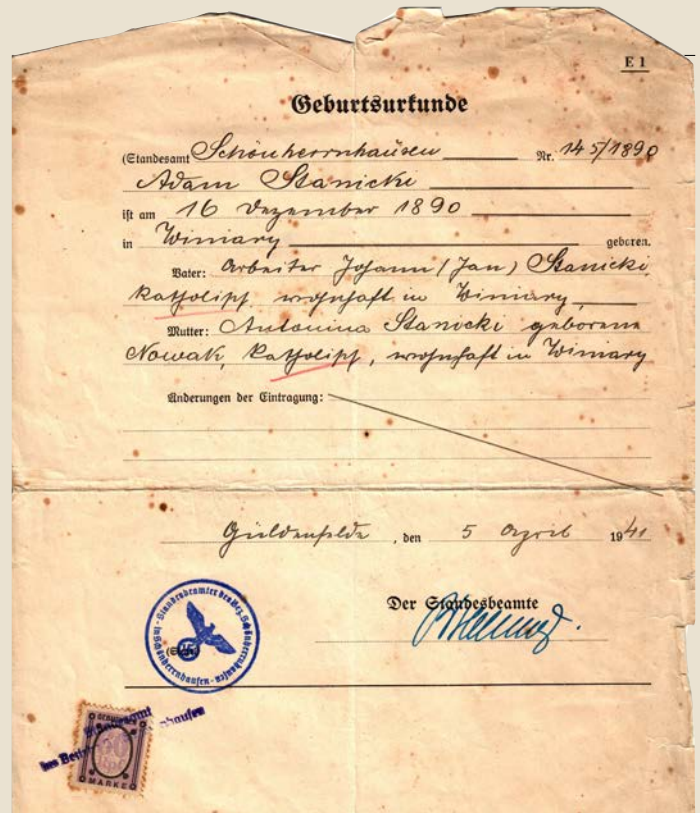 E 1
Geburtsurkunde
(Standesamt Schönherrnhausen Nr. 145/1890
Adam Stanicki
ist am 16 Dezember 1890
in Winiary geboren.
Vater: Arbeiter Johann (Jan) Stanicki
katholisch, wohnhaft in Winiary,
Mutter: Antonina Stanicki geborene
Nowak, katholisch, wohnhaft in Winiary
Änderungen der Eintragung:
Güldenfelde, den 5 April 1941
Der Standesbeamte
in Schönherrnhausen
MARKE